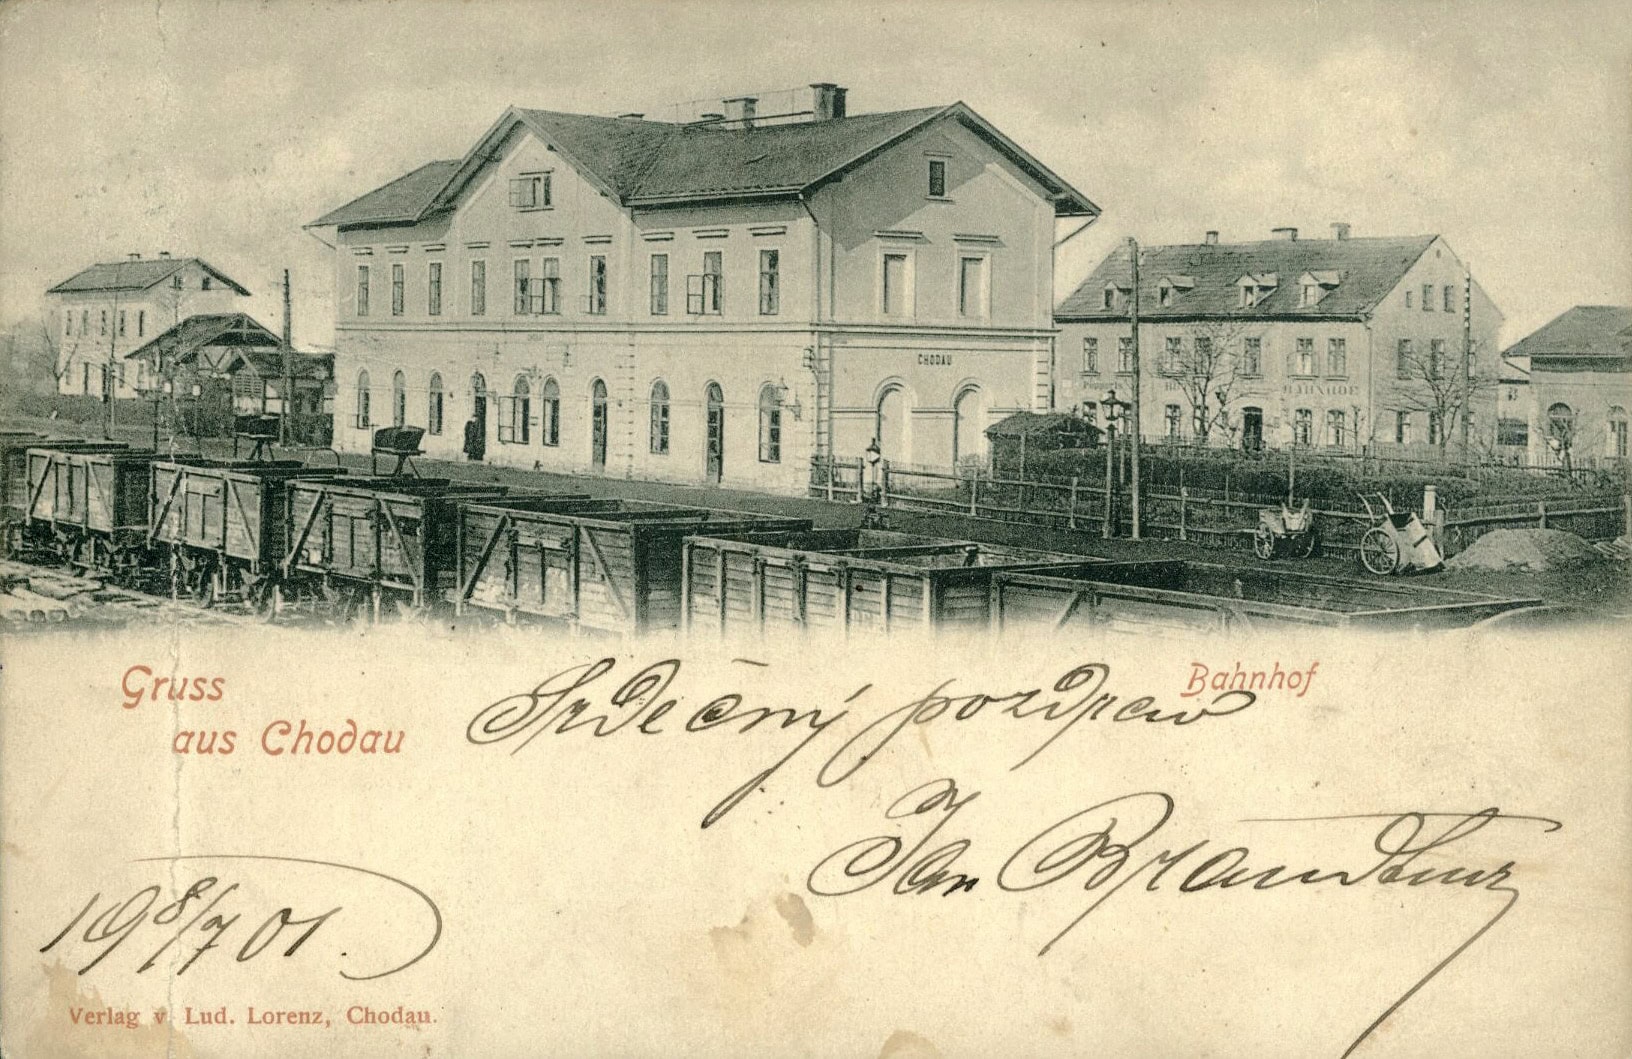 CHODAU
BAHNHOF
Gruss
aus Chodau
Bahnhof
Srdečný pozdrav
Jan
19 8/7 01.
Verlag v Lud. Lorenz, Chodau.